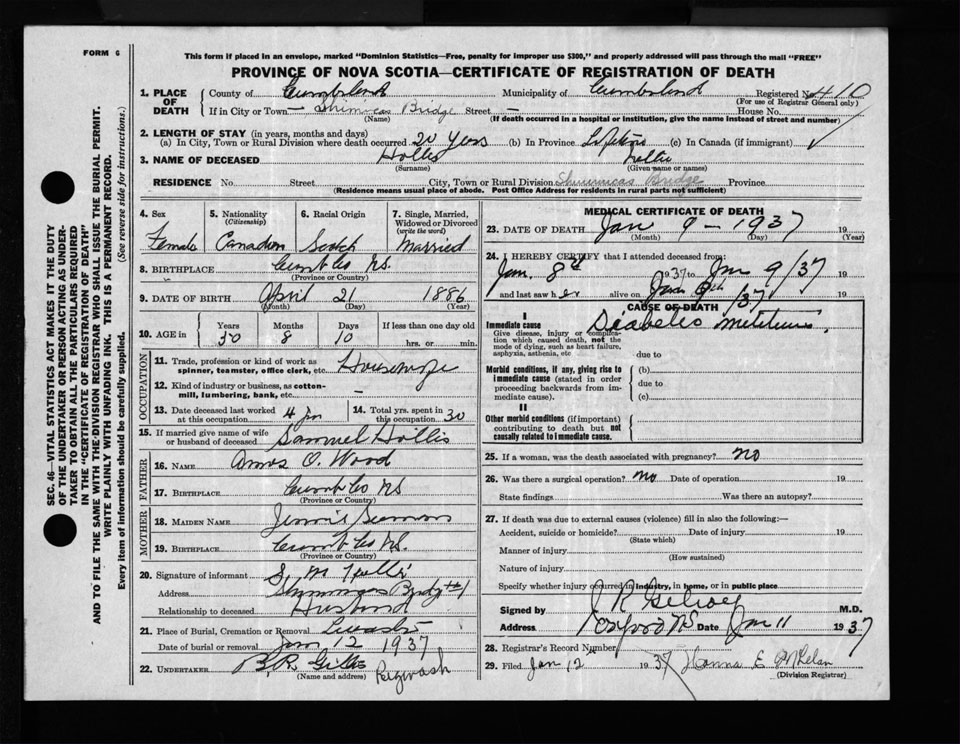 FORM 6
This form if placed in an envelope, marked "Dominion Statistics—Free, penalty for improper use $300," and properly addressed will pass through the mail "FREE"
PROVINCE OF NOVA SCOTIA—CERTIFICATE OF REGISTRATION OF DEATH
SEC. 46—VITAL STATISTICS ACT MAKES IT THE DUTY
OF THE UNDERTAKER OR PERSON ACTING AS UNDER-
TAKER TO OBTAIN ALL THE PARTICULARS REQUIRED
IN THE "CERTIFICATE OF REGISTRATION OF DEATH"
AND TO FILE THE SAME WITH THE DIVISION REGISTRAR WHO SHALL ISSUE THE BURIAL PERMIT.
WRITE PLAINLY WITH UNFADING INK. THIS IS A PERMANENT RECORD.
Every item of information should be carefully supplied. (See reverse side for instructions.)
1. PLACE OF DEATH County of Cumberland Municipality of Cumberland Registered No. 410
(For use of Registrar General only)
If in City or Town — Shinimicas Bridge Street — House No.
(Name) (If death occurred in a hospital or institution, give the name instead of street and number)
2. LENGTH OF STAY (in years, months and days)
(a) In City, Town or Rural Division where death occurred 20 years (b) In Province Lifetime (c) In Canada (if immigrant)
3. NAME OF DECEASED Hollis Nellie
(Surname) (Given name or names)
RESIDENCE No. Street City, Town or Rural Division Shinimicas Bridge Province
(Residence means usual place of abode. Post Office Address for residents in rural parts not sufficient)
4. Sex Female
5. Nationality (Citizenship) Canadian
6. Racial Origin Scotch
7. Single, Married, Widowed or Divorced (write the word) Married
8. BIRTHPLACE Cumb Co N.S.
(Province or Country)
9. DATE OF BIRTH April 21 1886
(Month) (Day) (Year)
10. AGE in Years Months Days If less than one day old
30 8 10 hrs. or min.
OCCUPATION
11. Trade, profession or kind of work as spinner, teamster, office clerk, etc. Housewife
12. Kind of industry or business, as cotton-mill, lumbering, bank, etc. —
13. Date deceased last worked at this occupation 14. Total yrs. spent in this occupation 30
15. If married give name of wife or husband of deceased Samuel Hollis
FATHER
16. NAME Amos O. Wood
17. BIRTHPLACE Cumb Co NS
(Province or Country)
MOTHER
18. MAIDEN NAME Jennie
19. BIRTHPLACE Cumb Co NS.
(Province or Country)
20. Signature of informant S. M. Hollis
Address Shinimicas Bridge
Relationship to deceased Husband
21. Place of Burial, Cremation or Removal
Date of burial or removal Jan 12 1937
22. UNDERTAKER B. R. Pugwash
(Name and address)
MEDICAL CERTIFICATE OF DEATH
23. DATE OF DEATH Jan 9 – 1937 19
(Month) (Day) (Year)
24. I HEREBY CERTIFY that I attended deceased from:
Jan. 8th 1937 to Jan 9/37 19
and last saw her alive on Jan 9th /37 19
CAUSE OF DEATH
I
Immediate cause Diabetic
Give disease, injury or complication which caused death, not the mode of dying, such as heart failure, asphyxia, asthenia, etc
due to
Morbid conditions, if any, giving rise to immediate cause (stated in order proceeding backwards from immediate cause). (b)
due to
(c)
II
Other morbid conditions (if important) contributing to death but not causally related to immediate cause.
25. If a woman, was the death associated with pregnancy? No
26. Was there a surgical operation? No Date of operation 19
State findings Was there an autopsy?
27. If death was due to external causes (violence) fill in also the following:—
Accident, suicide or homicide? Date of injury 19
(State which)
Manner of injury
(How sustained)
Nature of injury
Specify whether injury occurred in industry, in home, or in public place
Signed by J R Gilroy M.D.
Address Oxford NS Date Jan 11 1937
28. Registrar's Record Number
29. Filed Jan 12 1937 Hanna E Phelan
(Division Registrar)